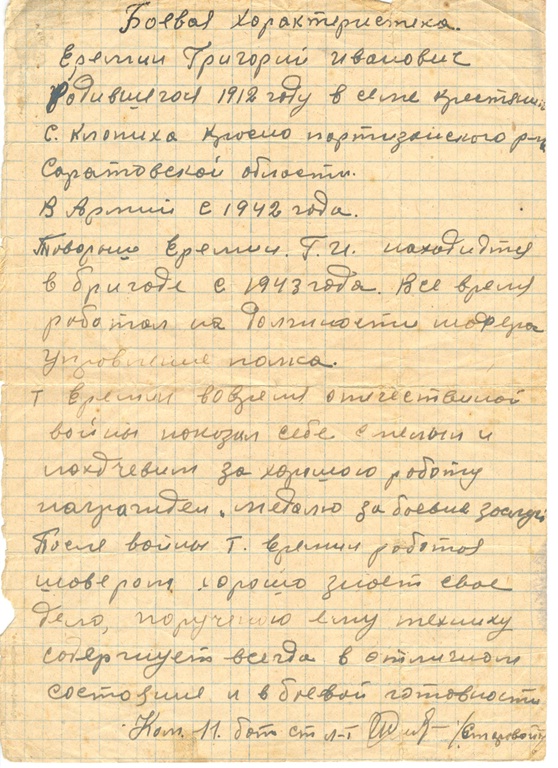 Боевая характеристика.
Еремин Григорий Иванович
Родившегося 1912 году в семе крестянин
с. Клопиха Красно партизанского р-на
Саратовской области.
В Армий с 1942 года.
Товарыш Еремин. Г. И. находится
в бригаде с 1943 года. Все время
работал на должности шофера
управление полка.
т Еремин вовремя отичественной
войны показал себе смелым и
находчевым за хорошою работу
награжден. медалю за боевые заслуги
После войны т. Еремин работая
шоверам, хорошо знает свае
дело, поручению ему технику
содержует всегда в отличном
состояние и в боевой готовности
Ком. 11. бат ст л-т